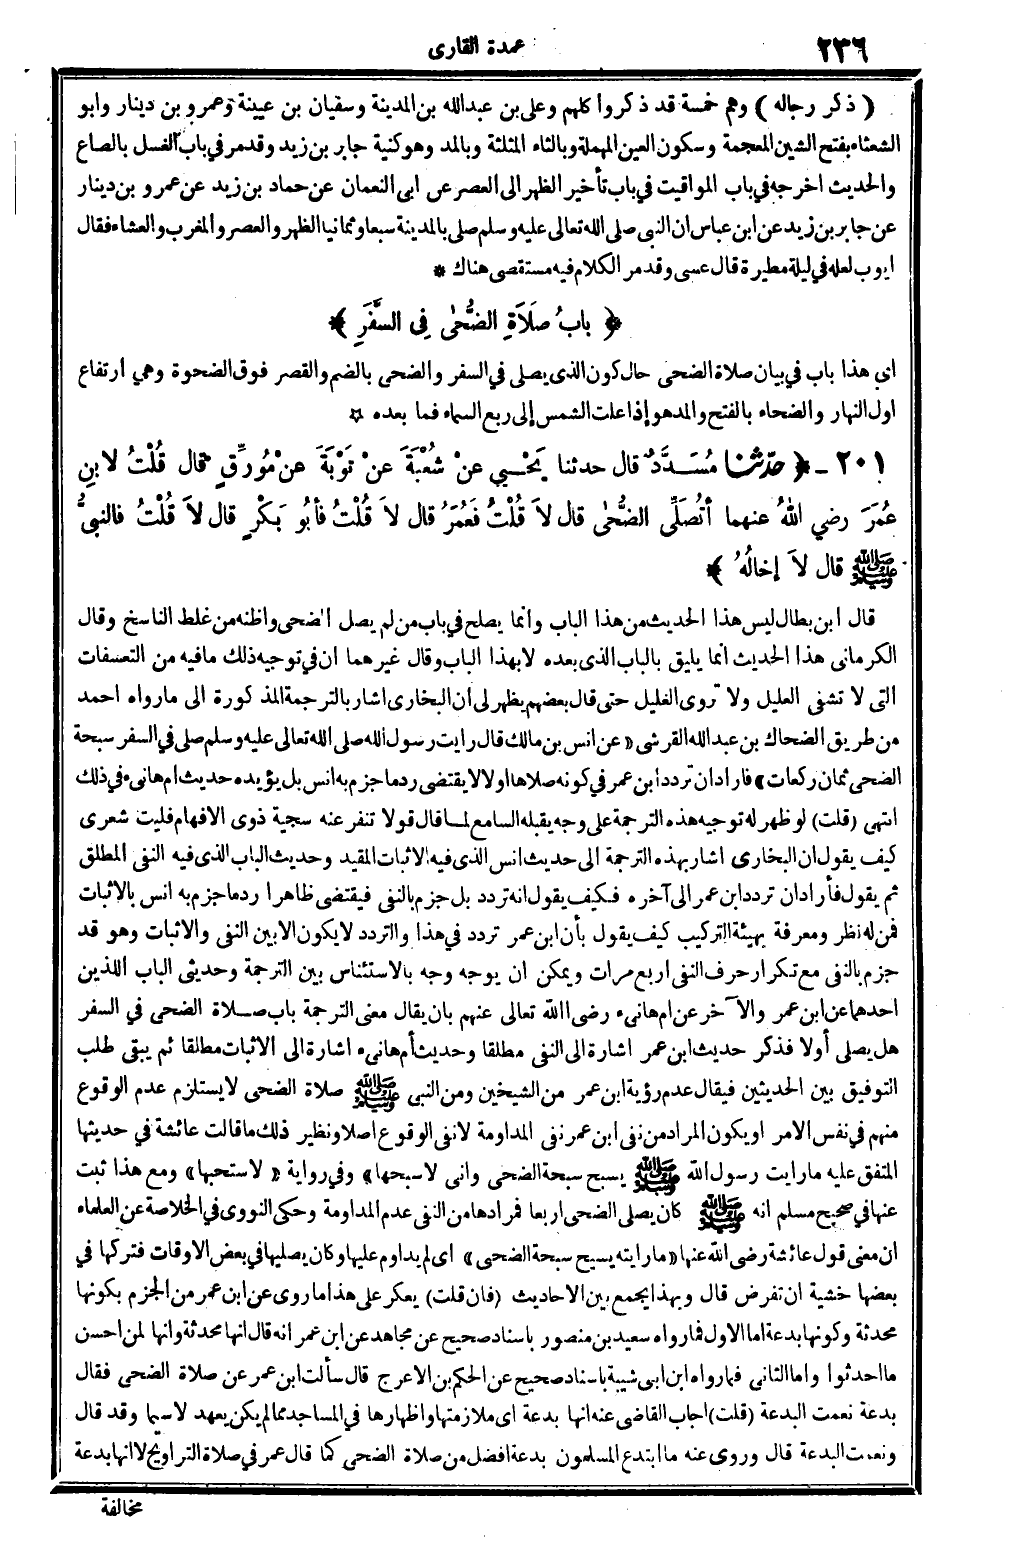 ٢٣٦
عمدة القارى
( ذكر رجاله ) وهم خمسة قد ذكروا كلهم وعلى بن عبدالله بن المدينة وسفيان بن عيينة وعمرو بن دينار وابو
الشعثاء بفتح الشين المعجمة وسكون العين المهملة وبالثاء المثلثة وبالمد وهو كنية جابر بن زيد وقد مر فى باب الغسل بالصاع
والحديث اخرجه في باب المواقيت في باب تأخير الظهر الى العصر عن ابى النعمان عن حماد بن زيد عن عمرو بن دينار
عن جابر بن زيد عن ابن عباس ان النبى صلى الله تعالى عليه وسلم صلى بالمدينة سبعا وثمانيا الظهر والعصر والمغرب والعشاء فقال
ايوب لعله في ليلة مطيرة قال عسى وقد مر الكلام فيه مستقصى هناك *
﴿ بابُ صَلَاةِ الضُّحٰى فِى السَّفَرِ ﴾
اى هذا باب في بيان صلاة الضحى حال كون الذى يصلى في السفر والضحى بالضم والقصر فوق الضحوة وهي ارتفاع
اول النهار والضحاء بالفتح والمد هو إذا علت الشمس إلى ربع السماء فما بعده ☆
٢٠١ - ﴿ حدّثنا مُسَدَّدٌ قال حدثنا يَحْيٰي عنْ شُعْبَةَ عنْ تَوْبَةَ عنْ مُوَرِّقٍ قال قُلْتُ لابنِ
عُمَرَ رضي اللهُ عنهما أتُصَلِّى الضُّحٰى قال لاَ قُلْتُ فَعُمَرُ قال لاَ قُلْتُ فأبُو بَكْرٍ قال لاَ قُلْتُ فالنبىُّ
ﷺ قال لاَ إخالُهُ ﴾
قال ابن بطال ليس هذا الحديث من هذا الباب وانما يصلح في باب من لم يصل الضحى واظنه من غلط الناسخ وقال
الكرمانى هذا الحديث انما يليق بالباب الذى بعده لا بهذا الباب وقال غيرهما ان في توجيه ذلك ما فيه من التعسفات
التى لا تشفى العليل ولا تروى الغليل حتى قال بعضهم يظهر لى ان البخارى اشار بالترجمة المذكورة الى ما رواه احمد
من طريق الضحاك بن عبدالله القرشى « عن انس بن مالك قال رايت رسول الله صلى الله تعالى عليه وسلم صلى في السفر سبحة
الضحى ثمان ركعات » فاراد ان تردد ابن عمر في كونه صلاها او لا لا يقتضى رد ما جزم به انس بل يؤيده حديث ام هانىء في ذلك
انتهى (قلت) لو ظهر له توجيه هذه الترجمة على وجه يقبله السامع لما قال قولا تنفر عنه سجية ذوى الافهام فليت شعرى
كيف يقول ان البخارى اشار بهذه الترجمة الى حديث انس الذى فيه الاثبات المقيد وحديث الباب الذى فيه النفى المطلق
ثم يقول فأراد ان تردد ابن عمر الى آخره فكيف يقول انه تردد بل جزم بالنفى فيقتضى ظاهرا رد ما جزم به انس بالاثبات
فمن له نظر ومعرفة بهيئة التركيب كيف يقول بأن ابن عمر تردد في هذا والتردد لا يكون الا بين النفى والاثبات وهو قد
جزم بالنفى مع تكرار حرف النفى اربع مرات ويمكن ان يوجه وجه بالاستئناس بين الترجمة وحديثى الباب اللذين
احدهما عن ابن عمر والآخر عن ام هانىء رضى الله تعالى عنهم بان يقال معنى الترجمة باب صلاة الضحى في السفر
هل يصلى أولا فذكر حديث ابن عمر اشارة الى النفى مطلقا وحديث أم هانىء اشارة الى الاثبات مطلقا ثم يبقى طلب
التوفيق بين الحديثين فيقال عدم رؤية ابن عمر من الشيخين ومن النبى ﷺ صلاة الضحى لا يستلزم عدم الوقوع
منهم في نفس الامر او يكون المراد من نفى ابن عمر نفى المداومة لا نفى الوقوع اصلا ونظير ذلك ما قالت عائشة في حديثها
المتفق عليه ما رايت رسول الله ﷺ يسبح سبحة الضحى وانى لاسبحها » وفي رواية « لاستحبها » ومع هذا ثبت
عنها في صحيح مسلم انه ﷺ كان يصلى الضحى اربعا فمرادها من النفى عدم المداومة وحكى النووى في الخلاصة عن العلماء
ان معنى قول عائشة رضى الله عنها « ما رايته يسبح سبحة الضحى » اى لم يداوم عليها وكان يصليها في بعض الاوقات فتركها في
بعضها خشية ان تفرض قال وبهذا يجمع بين الاحاديث (فان قلت) يعكر على هذا ما روى عن ابن عمر من الجزم بكونها
محدثة وكونها بدعة اما الاول فما رواه سعيد بن منصور باسناد صحيح عن مجاهد عن ابن عمر انه قال انها محدثة وانها لمن احسن
ما احدثوا واما الثانى فما رواه ابن ابى شيبة باسناد صحيح عن الحكم بن الاعرج قال سألت ابن عمر عن صلاة الضحى فقال
بدعة نعمت البدعة (قلت) اجاب القاضى عنه انها بدعة اى ملازمتها واظهارها في المساجد مما لم يكن يعهد لا سيما وقد قال
ونعمت البدعة قال وروى عنه ما ابتدع المسلمون بدعة افضل من صلاة الضحى كما قال عمر في صلاة التراويح لا انها بدعة
مخالفة